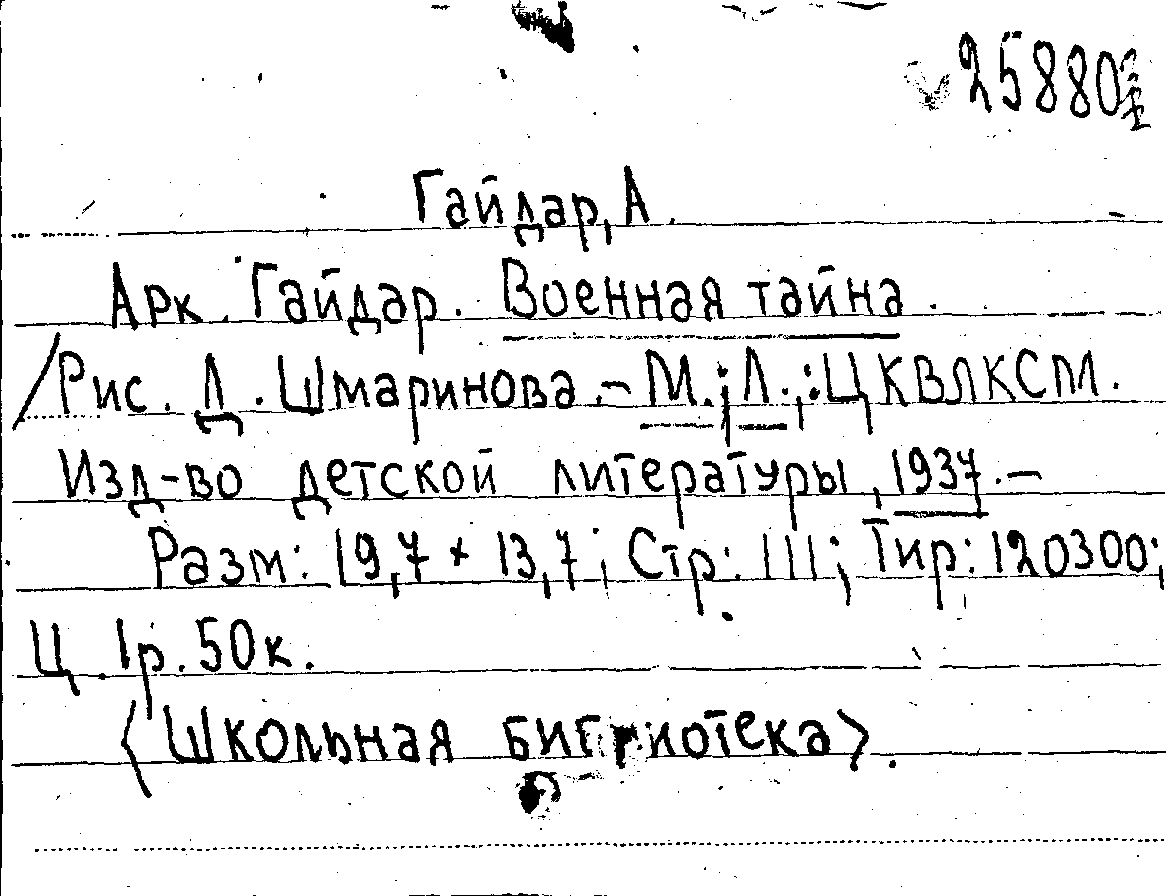 25880
Гайдар, А.
Арк. Гайдар. Военная тайна.
/Рис. Д. Шмаринова. - М.; Л.,: ЦКВЛКСМ.
Изд-во детской литературы, 1937. -
Разм: 19,7 × 13,7; Стр: 111; Тир: 120300;
Ц. 1р. 50к.
<Школьная библиотека>.